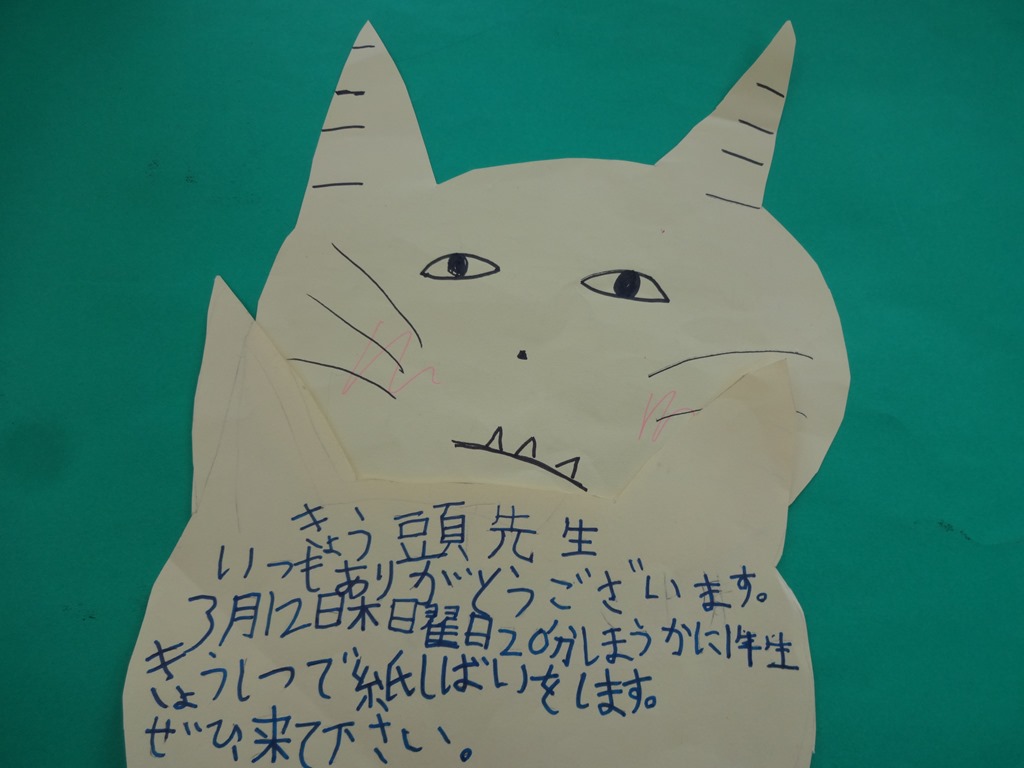 きょう頭先生
いつもありがとうございます。
3月12日木日曜日20分しまうかに1年生
きょうしつで紙しばいをします。
ぜひ来て下さい。